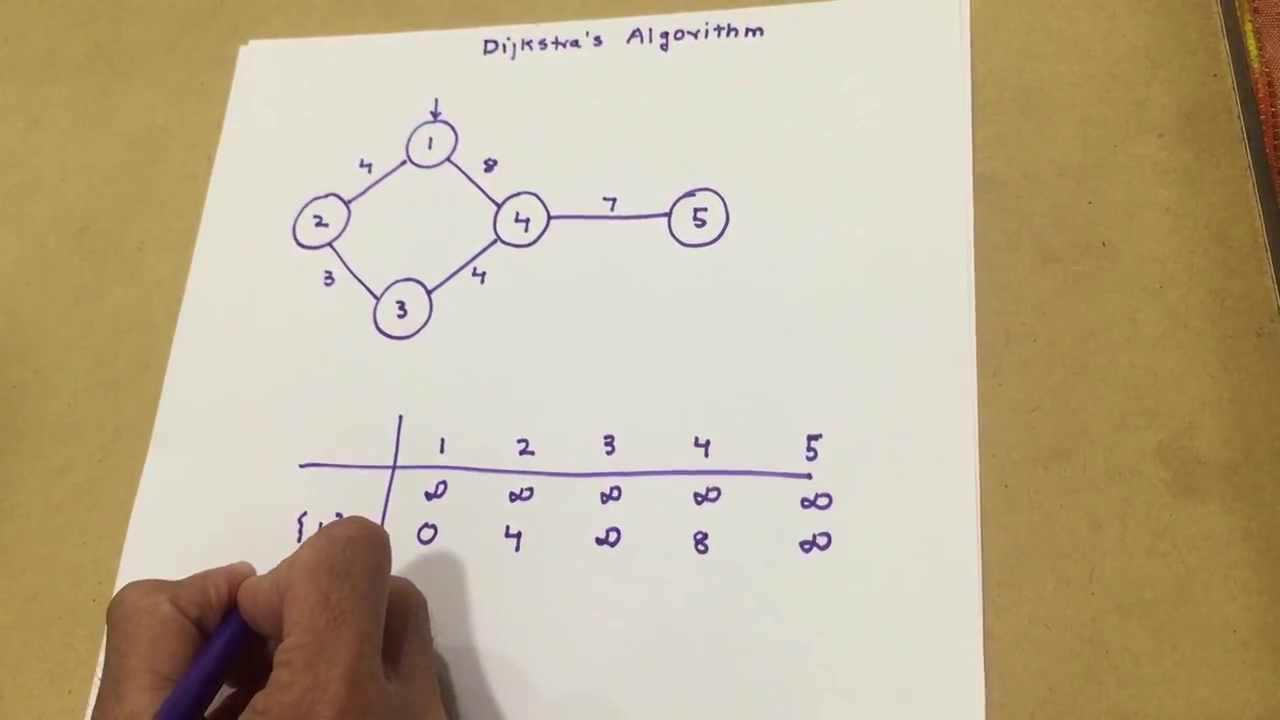 Dijkstra's Algorithm
1
4 8
2 4 7 5
3 4
3
1 2 3 4 5
∞ ∞ ∞ ∞ ∞
0 4 ∞ 8 ∞